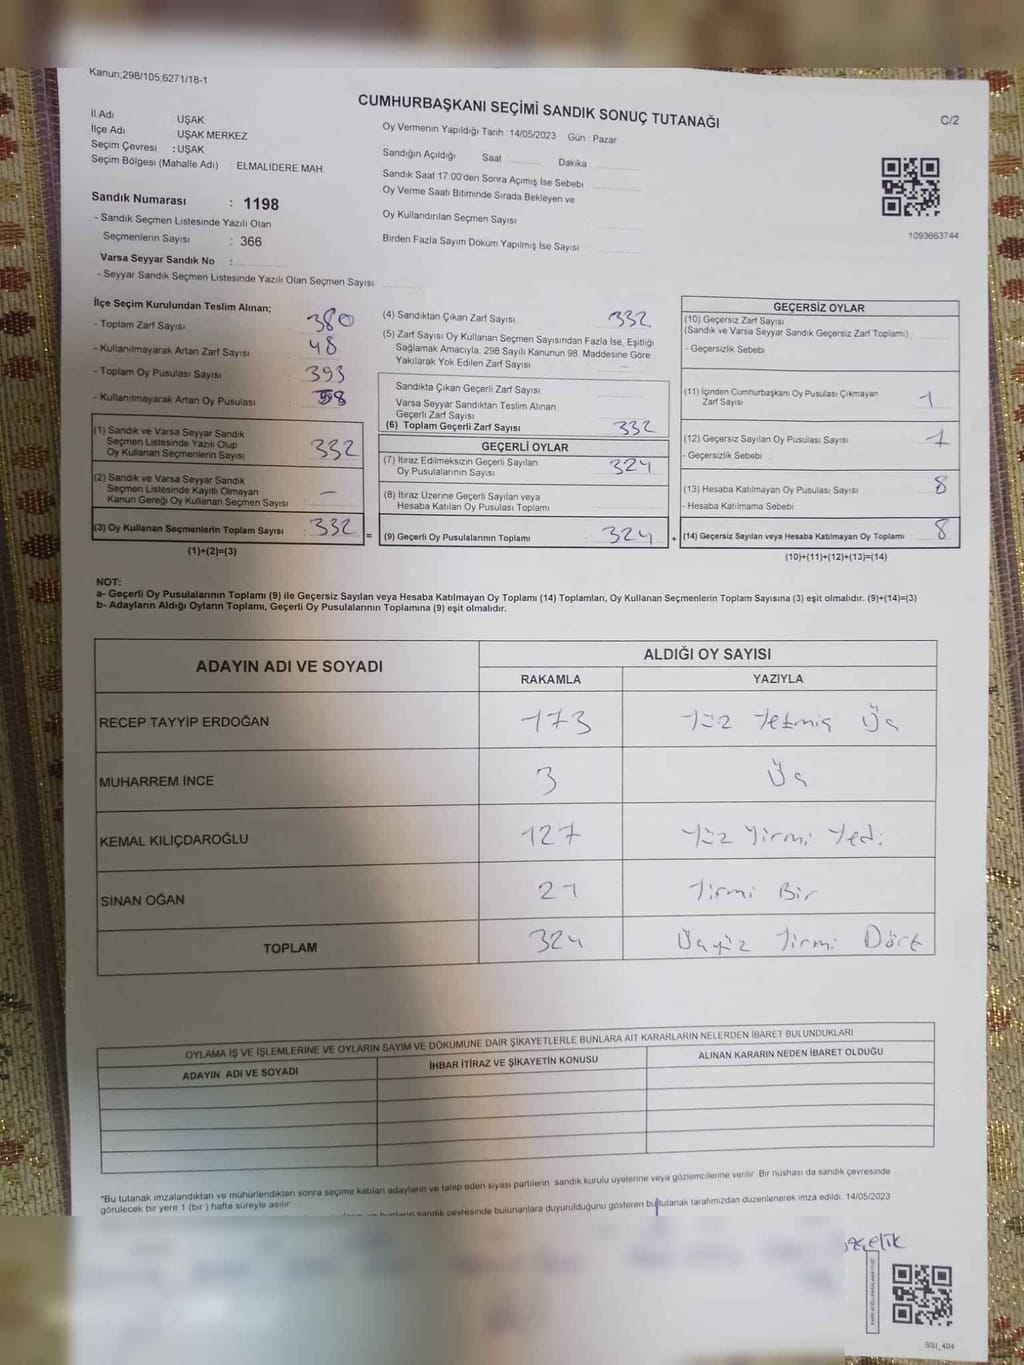 Kanun;298/105;6271/18-1
CUMHURBAŞKANI SEÇİMİ SANDIK SONUÇ TUTANAĞI
C/2
İl Adı : UŞAK
İlçe Adı : UŞAK MERKEZ
Seçim Çevresi : UŞAK
Seçim Bölgesi (Mahalle Adı) : ELMALIDERE MAH.
Sandık Numarası : 1198
- Sandık Seçmen Listesinde Yazılı Olan
Seçmenlerin Sayısı : 366
Varsa Seyyar Sandık No :
- Seyyar Sandık Seçmen Listesinde Yazılı Olan Seçmen Sayısı
Oy Vermenin Yapıldığı Tarih : 14/05/2023 Gün : Pazar
Sandığın Açıldığı Saat Dakika
Sandık Saat 17:00'den Sonra Açımış İse Sebebi
Oy Verme Saati Bitiminde Sırada Bekleyen ve
Oy Kullandırılan Seçmen Sayısı
Birden Fazla Sayım Döküm Yapılmış İse Sayısı
1093663744
İlçe Seçim Kurulundan Teslim Alınan;
- Toplam Zarf Sayısı : 380
- Kullanılmayarak Artan Zarf Sayısı : 48
- Toplam Oy Pusulası Sayısı : 393
- Kullanılmayarak Artan Oy Pusulası : 58
(1) Sandık ve Varsa Seyyar Sandık
Seçmen Listesinde Yazılı Olup
Oy Kullanan Seçmenlerin Sayısı 332
(2) Sandık ve Varsa Seyyar Sandık
Seçmen Listesinde Kayıtlı Olmayan
Kanun Gereği Oy Kullanan Seçmen Sayısı –
(3) Oy Kullanan Seçmenlerin Toplam Sayısı 332
(1)+(2)=(3)
=
(4) Sandıktan Çıkan Zarf Sayısı 332
(5) Zarf Sayısı Oy Kullanan Seçmen Sayısından Fazla İse, Eşitliği
Sağlamak Amacıyla, 298 Sayılı Kanunun 98. Maddesine Göre
Yakılarak Yok Edilen Zarf Sayısı –
Sandıkta Çıkan Geçerli Zarf Sayısı
Varsa Seyyar Sandıktan Teslim Alınan
Geçerli Zarf Sayısı
(6) Toplam Geçerli Zarf Sayısı 332
GEÇERLİ OYLAR
(7) İtiraz Edilmeksizin Geçerli Sayılan
Oy Pusulalarının Sayısı 324
(8) İtiraz Üzerine Geçerli Sayılan veya
Hesaba Katılan Oy Pusulası Toplamı
(9) Geçerli Oy Pusulalarının Toplamı 324
+
GEÇERSİZ OYLAR
(10) Geçersiz Zarf Sayısı
(Sandık ve Varsa Seyyar Sandık Geçersiz Zarf Toplamı)
- Geçersizlik Sebebi
(11) İçinden Cumhurbaşkanı Oy Pusulası Çıkmayan
Zarf Sayısı 1
(12) Geçersiz Sayılan Oy Pusulası Sayısı
- Geçersizlik Sebebi :
(13) Hesaba Katılmayan Oy Pusulası Sayısı 8
- Hesaba Katılmama Sebebi
(14) Geçersiz Sayılan veya Hesaba Katılmayan Oy Toplamı 8
(10)+(11)+(12)+(13)=(14)
NOT:
a- Geçerli Oy Pusulalarının Toplamı (9) ile Geçersiz Sayılan veya Hesaba Katılmayan Oy Toplamı (14) Toplamları, Oy Kullanan Seçmenlerin Toplam Sayısına (3) eşit olmalıdır. (9)+(14)=(3)
b- Adayların Aldığı Oyların Toplamı, Geçerli Oy Pusulalarının Toplamına (9) eşit olmalıdır.
ADAYIN ADI VE SOYADI ALDIĞI OY SAYISI
RAKAMLA YAZIYLA
RECEP TAYYİP ERDOĞAN 173 Yüz Yetmiş Üç
MUHARREM İNCE 3 Üç
KEMAL KILIÇDAROĞLU 127 Yüz Yirmi Yedi
SİNAN OĞAN 21 Yirmi Bir
TOPLAM 324 Üçyüz Yirmi Dört
OYLAMA İŞ VE İŞLEMLERİNE VE OYLARIN SAYIM VE DÖKÜMÜNE DAİR ŞİKAYETLERLE BUNLARA AİT KARARLARIN NELERDEN İBARET BULUNDUKLARI
ADAYIN ADI VE SOYADI İHBAR İTİRAZ VE ŞİKAYETİN KONUSU ALINAN KARARIN NEDEN İBARET OLDUĞU
*Bu tutanak imzalandıktan ve mühürlendikten sonra seçime katılan adayların ve talep eden siyasi partilerin sandık kurulu üyelerine veya gözlemcilerine verilir. Bir nushası da sandık çevresinde
görülecek bir yere 1 (bir) hafta süreyle asılır.
sandık çevresinde bulunanlara duyurulduğunu gösteren bu tutanak tarafımızdan düzenlenerek imza edildi. 14/05/2023
SSI_404